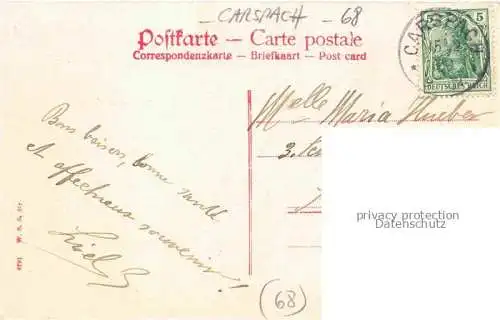 CARSPACH - 68
Postkarte — Carte postale
Correspondenzkarte — Briefkaart — Post card
CARSPACH
5 5
DEUTSCHES REICH
Melle Maria Hueber
3.
Bons baisers, bonne santé
et affectueux souvenirs!
privacy protection
Datenschutz
W. S. S. St.
(68)